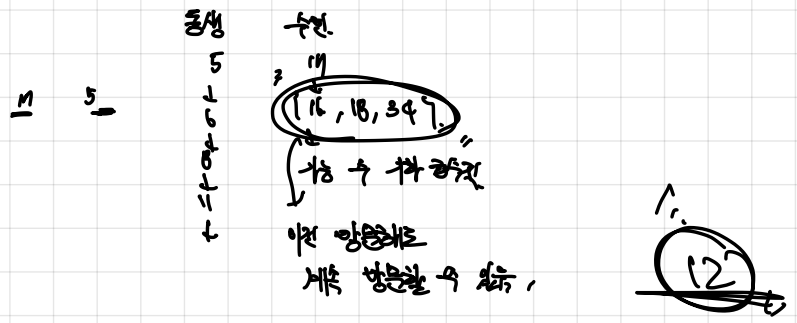 동생 수빈
5 17
17 5
6 {16, 18, 34}
8
11
가능 수
이전 방문해도
계속 방문할 수 있음,
12